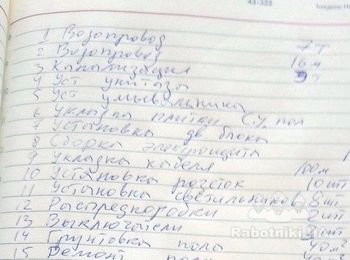 43-322
1 Водопровод 7т
2 Водопровод 16м
3 Канализация 9т
4 Уст унитаза
5 Уст умывальника
6 Укладка плитки С.у. пол
7 Установка дв блока
8 Сборка электрощита
9 Укладка кабеля 100м
10 Установка розеток 10шт
11 Установка светильников 8шт
12 Распредкоробки 2шт
13 Выключатели шт
14 Грунтовка пола 40м²
15 Ремонт
Rabotniki